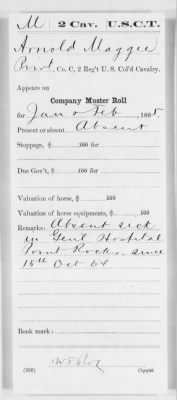 M 2 Cav. U.S.C.T.
Arnold Maggee
Pvt, Co. C, 2 Reg't U. S. Col'd Cavalry.
Appears on
Company Muster Roll
for Jan & Feb, 1865.
Present or absent Absent
Stoppage, $ 100 for
Due Gov't, $ 100 for
Valuation of horse, $ 100
Valuation of horse equipments, $ 100
Remarks: Absent sick
in Genl Hospital
Point Rocks, since
15th Oct 64
Book mark:
(358) Copyist.